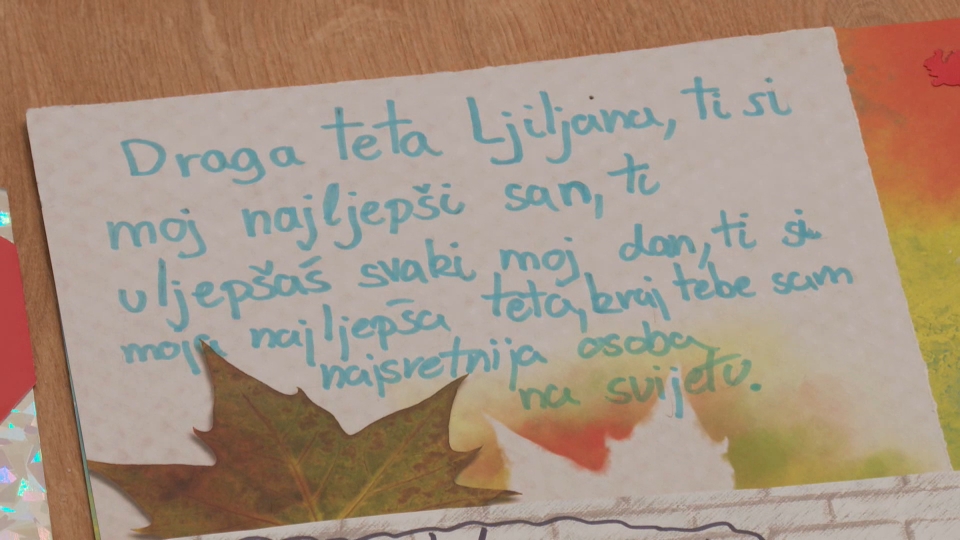 Draga teta Ljiljana, ti si
moj najljepši san, ti
uljepšaš svaki moj dan, ti si
moja najljepša teta, kraj tebe sam
najsretnija osoba
na svijetu.